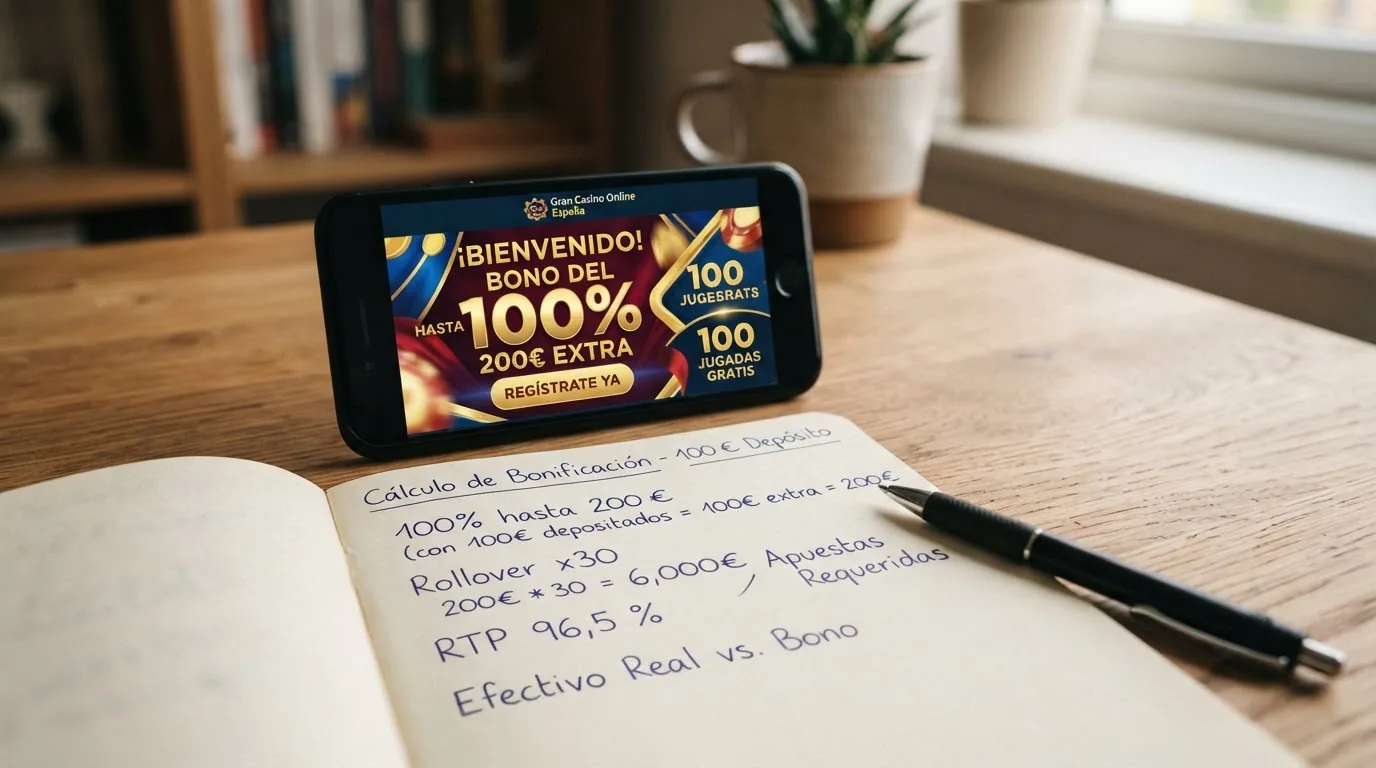 Gran Casino Online
España
¡BIENVENIDO!
BONO DEL
HASTA 100%
200€ EXTRA
REGÍSTRATE YA
100
JUGEBRATS
100
JUGADAS
GRATIS
Cálculo de Bonificación - 100 € Depósito
100% hasta 200 €
(con 100€ depositados = 100€ extra = 200€
Rollover x30
200€ * 30 = 6,000€ Apuestas
Requeridas
RTP 96,5 %
Efectivo Real vs. Bono